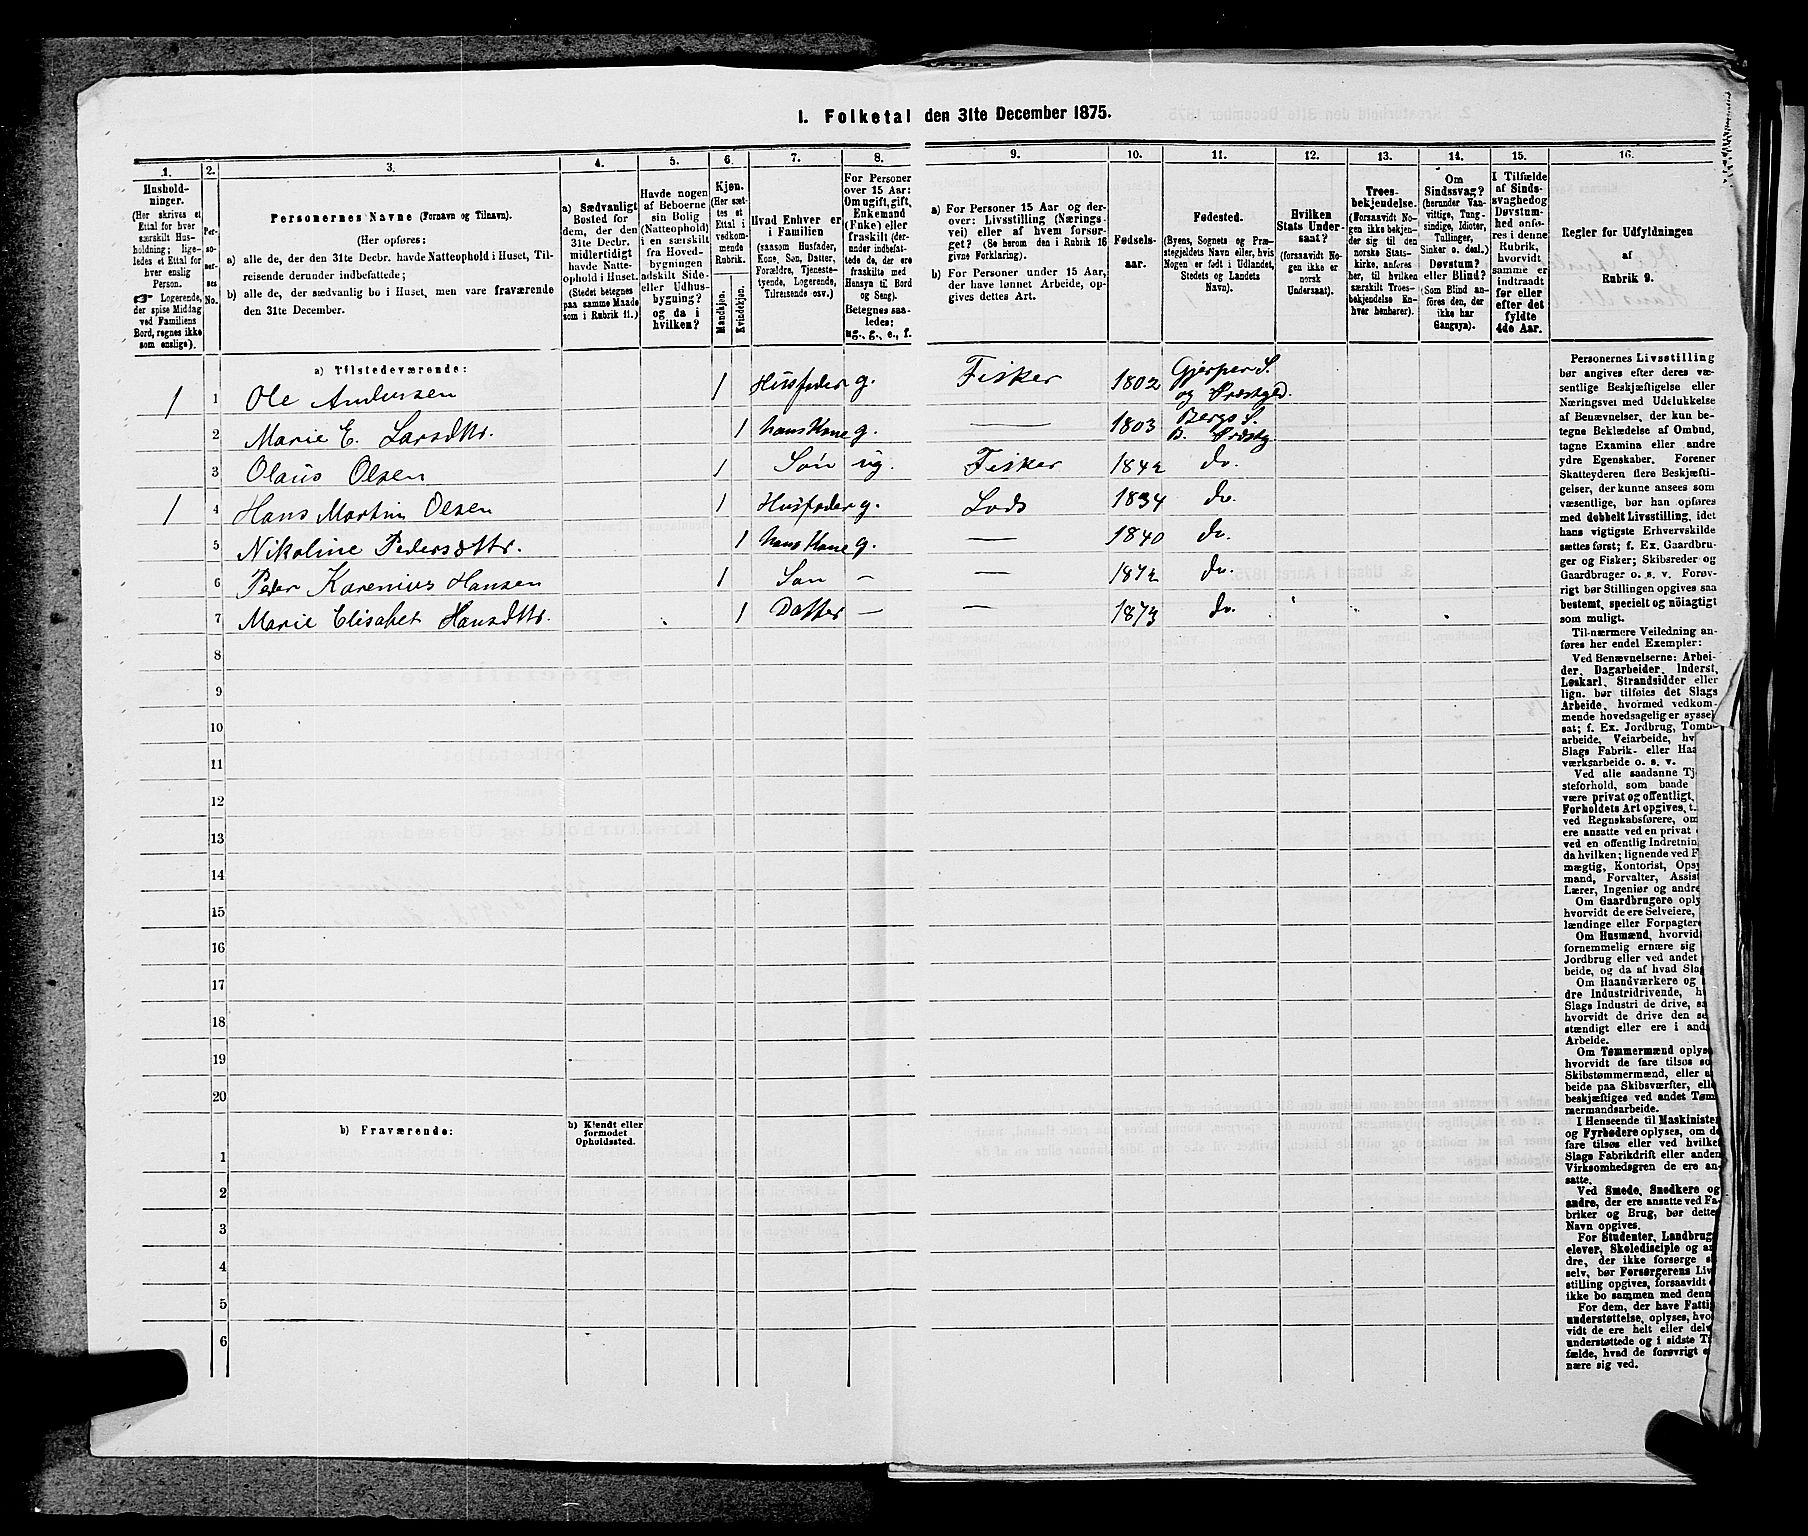 1. Folketal den 31te December 1875.
1.
2.
3.
4.
5.
6.
7.
8.
9.
10.
11.
12.
13.
14.
15.
16.
Hushold-
ninger.
(Her skrives et
Ettal for hver
særskilt Hus-
holdning; lige-
ledes et Ettal for
hver enslig
Person.
☞ Logerende,
der spise Middag
ved Familiens
Bord, regnes ikke
som enslige).
Per-
so-
ner-
nes
No.
Personernes Navne (Fornavn og Tilnavn).
(Her opføres:
a) alle de, der den 31te Decbr. havde Natteophold i Huset, Til-
reisende derunder indbefattede;
b) alle de, der sædvanlig bo i Huset, men vare fraværende
den 31te December.
a) Sædvanligt
Bosted for
dem, der den
31te Decbr.
midlertidigt
havde Natte-
ophold i Huset.
(Stedet betegnes
paa samme Maade
som i Rubrik 11.)
Havde nogen
af Beboerne
sin Bolig
(Natteophold)
i en særskilt
fra Hoved-
bygningen
adskilt Side-
eller Udhus-
bygning?
og da i
hvilken?
Kjøn.
(Her sæt-
tes et
Ettal i
vedkom-
mende
Rubrik.
Mandkjøn.
Kvindekjøn.
Hvad Enhver er
i Familien
(saasom Husfader,
Kone, Søn, Datter,
Forældre, Tjeneste-
tyende, Logerende,
Tilreisende osv.)
For Personer
over 15 Aar:
Om ugift, gift,
Enkemand
(Enke) eller
fraskilt (der-
under indbefat-
tede de, der ere
fraskilte med
Hensyn til Bord
og Seng).
Betegnes saa-
ledes:
ug., g., e., f.
a) For Personer 15 Aar og der-
over: Livsstilling (Nærings-
vei) eller af hvem forsør-
get? (Se herom den i Rubrik 16
givne Forklaring).
b) For Personer under 15 Aar,
der have lønnet Arbeide, op-
gives dettes Art.
Fødsels-
aar.
Fødested.
(Byens, Sognets og Præ-
stegjeldets Navn eller, hvis
Nogen er født i Udlandet,
Stedets og Landets
Navn).
Hvilken
Stats Under-
saat?
(forsaavidt No-
gen ikke er
norsk
Undersaat).
Troes-
bekjendelse.
(Forsaavidt No-
gen ikke bekjen-
der sig til den
norske Stats-
kirke, anføres
her, til hvilken
særskilt Troes-
bekjendelse En-
hver henhører).
Om
Sindssvag?
(herunder Van-
vittige, Tung-
sindige, Idioter,
Tullinger,
Sinker o. desl.)
Døvstum?
eller Blind?
(Som Blind an-
føres den, der
ikke har
Gangsyn).
I Tilfælde
af Sinds-
svaghed og
Døvstum-
hed anfø-
res i denne
Rubrik,
hvorvidt
samme er
indtraadt
før eller
efter det
fyldte
4de Aar.
Regler for Udfyldningen
af
Rubrik 9.
a) Tilstedeværende:
1 1 Ole Andersen 1 Husfader g. Fisker 1802 Gjerper S. og Præstged.
2 Marie E. Larsdttr. 1 hans Kone g. — 1803 Bergs S. B. Præstg.
3 Olaus Olsen 1 Søn ug. Fisker 1842 do.
1 4 Hans Martin Olsen 1 Husfader g. Lods 1834 do.
5 Nikoline Pedersdttr. 1 hans Kone g. — 1840 do.
6 Peder Karenius Hansen 1 Søn — — 1872 do.
7 Marie Elisabet Hansdttr. 1 Datter — — 1873 do.
8
9
10
11
12
13
14
15
16
17
18
19
20
b) Fraværende:
b) Kjendt eller
formodet
Opholdssted.
1
2
3
4
5
6
Personernes Livsstilling
bør angives efter deres væ-
sentlige Beskjæftigelse eller
Næringsvei med Udelukkelse
af Benævnelser, der kun be-
tegne Beklædelse af Ombud,
tagne Examina eller andre
ydre Egenskaber. Forener
Skatteyderen flere Beskjæfti-
gelser, der kunne ansees som
væsentlige, bør han opføres
med dobbelt Livsstilling, idet
hans vigtigste Erhvervskilde
sættes først; f. Ex. Gaardbru-
ger og Fisker; Skibsreder og
Gaardbruger o. s. v. Forøv-
rigt bør Stillingen opgives saa
bestemt, specielt og nöiagtigt
som muligt.
Til nærmere Veiledning an-
føres her endel Exempler:
Ved Benævnelserne: Arbei-
der, Dagarbeider, Inderst,
Løskarl, Strandsidder eller
lign. bør tilføies det Slags
Arbeide, hvormed vedkom-
mende hovedsagelig er syssel-
sat; f. Ex. Jordbrug, Tomte-
arbeide, Veiarbeide, hv
Slags Fabrik- eller Haa
værksarbeide o. s. v.
Ved alle saadanne Tj
steforhold, som baade
være privat og offentligt,
Forholdets Art opgives, t.
ved Regnskabsførere, om
ere ansatte ved en privat
ved en offentlig Indretnin
da hvilken; lignende ved F
mægtig, Kontorist, Opsy
mand, Forvalter, Assist
Lærer, Ingeniør og andre
Om Gaardbrugere oply
hvorvidt de ere Selveiere,
lændinge eller Forpagtere
Om Husmænd, hvorvid
fornemmelig ernære sig
Jordbrug eller ved andet
beide, og da af hvad Slag
Om Haandværkere og
dre Industridrivende, h
Slags Industri de drive, sa
hvorvidt de drive den se
stændigt eller ere i andr
Arbeide.
Om Tømmermænd oplyse
hvorvidt de fare tilsøs so
Skibstømmermænd, eller a
beide paa Skibsværfter, elle
beskjæftiges ved andet Tøm
mermandsarbeide.
I Henseende til Maskiniste
og Fyrbødere oplyses, om d
fare tilsøs eller ved hvilket
Slags Fabrikdrift eller anden
Virksomhedsgren de ere an-
satte.
Ved Smede, Snedkere og
andre, der ere ansatte ved Fa-
briker og Brug, bør dettes
Navn opgives.
For Studenter, Landbrugs
elever, Skoledisciple og an
dre, der ikke forsørge s
selv, bør Forsørgerens Liv
stilling opgives, forsaavidt
ikke bo sammen med denn
For dem, der have Fattig
understøttelse, oplyses, hvo
vidt de ere helt eller delv
understøttede og i sidste T
fælde, hvad de forøvrigt e
nære sig ved.